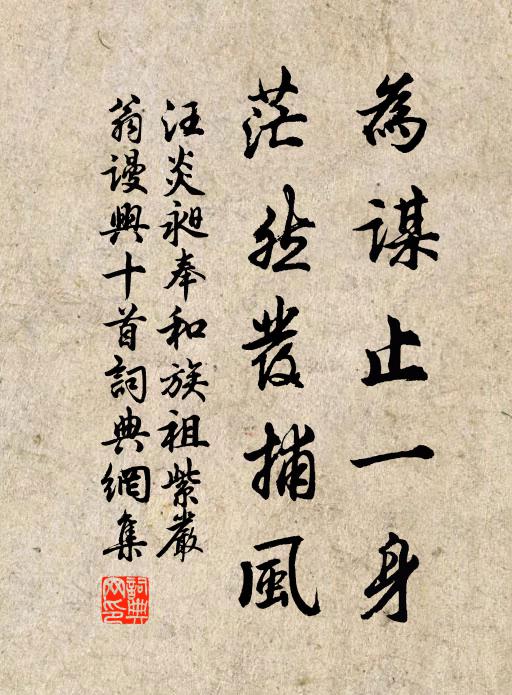 為謀止一身
茫然發捕風
汪炎昶奉和族祖紫巖
翁謾興十首詞典網集
詞典網印